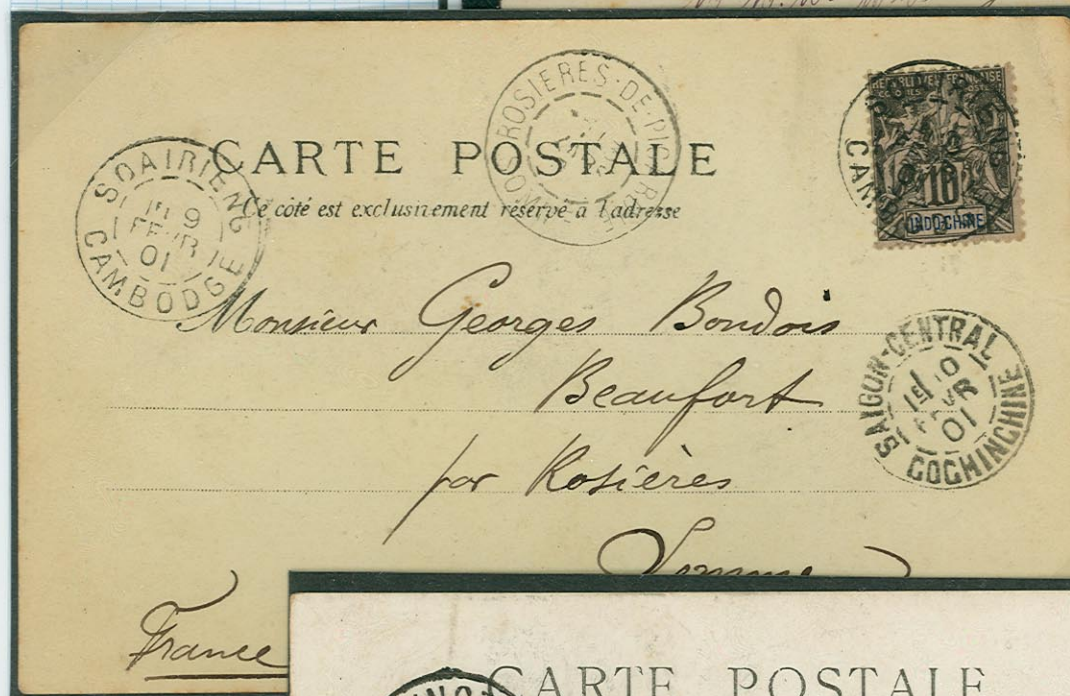 CARTE POSTALE
Ce côté est exclusivement réservé à l'adresse
SOAIRIENG
9
FEVR
01
CAMBODGE
ROSIERES-DE-PIC
INDO-CHINE
10
SAIGON-CENTRAL
10
01
COCHINCHINE
Monsieur Georges Boudois
Beaufort
par Rosières
Somme
France
CARTE POSTALE